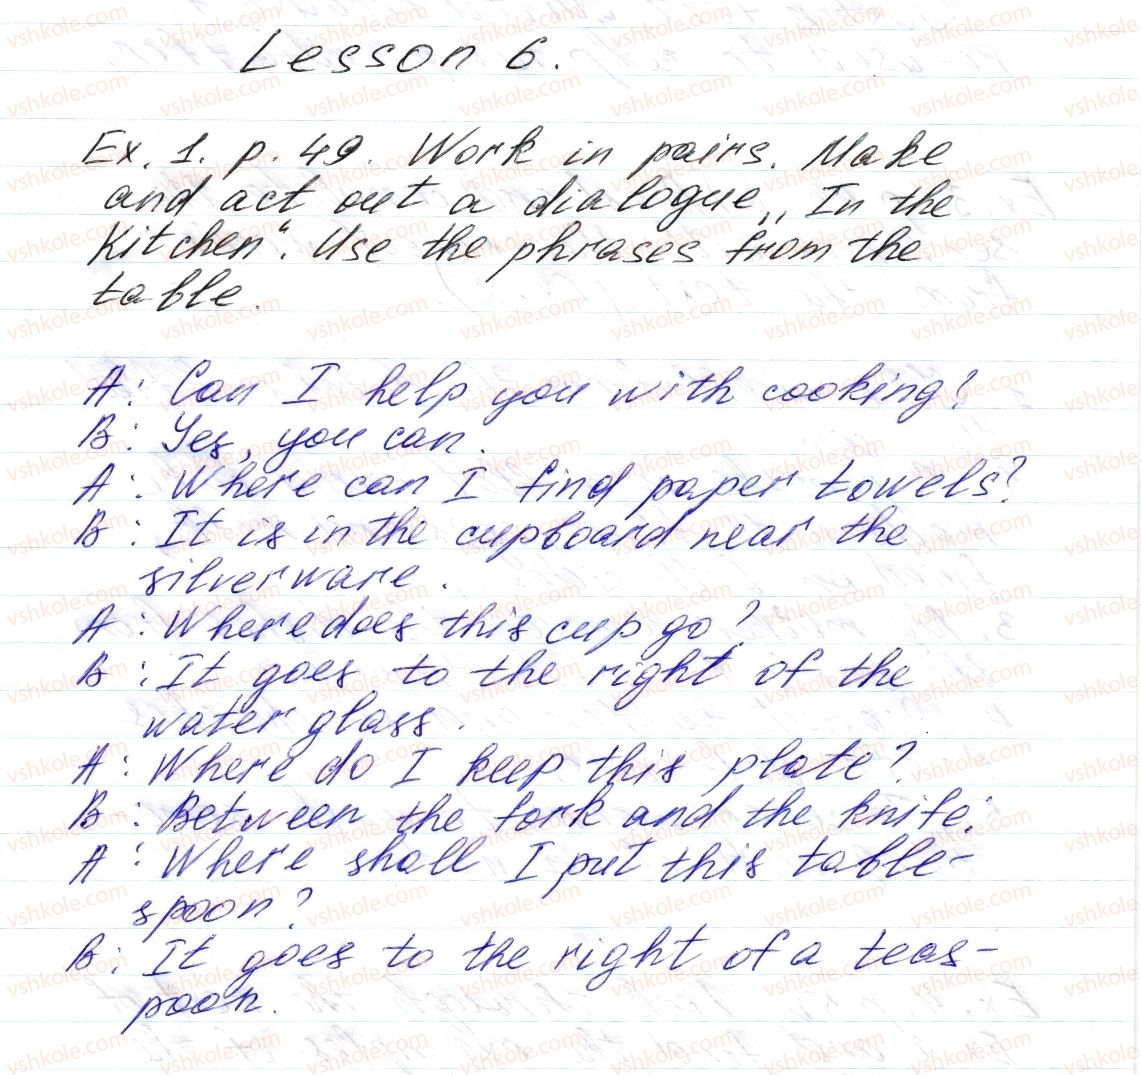 Lesson 6.
Ex. 1. p. 49. Work in pairs. Make
and act out a dialogue „In the
Kitchen“. Use the phrases from the
table.
A: Can I help you with cooking?
B: Yes, you can.
A: Where can I find paper towels?
B: It is in the cupboard near the
silverware.
A: Where does this cup go?
B: It goes to the right of the
water glass.
A: Where do I keep this plate?
B: Between the fork and the knife.
A: Where shall I put this table-
spoon?
B: It goes to the right of a teas-
poon.
vshkole.com